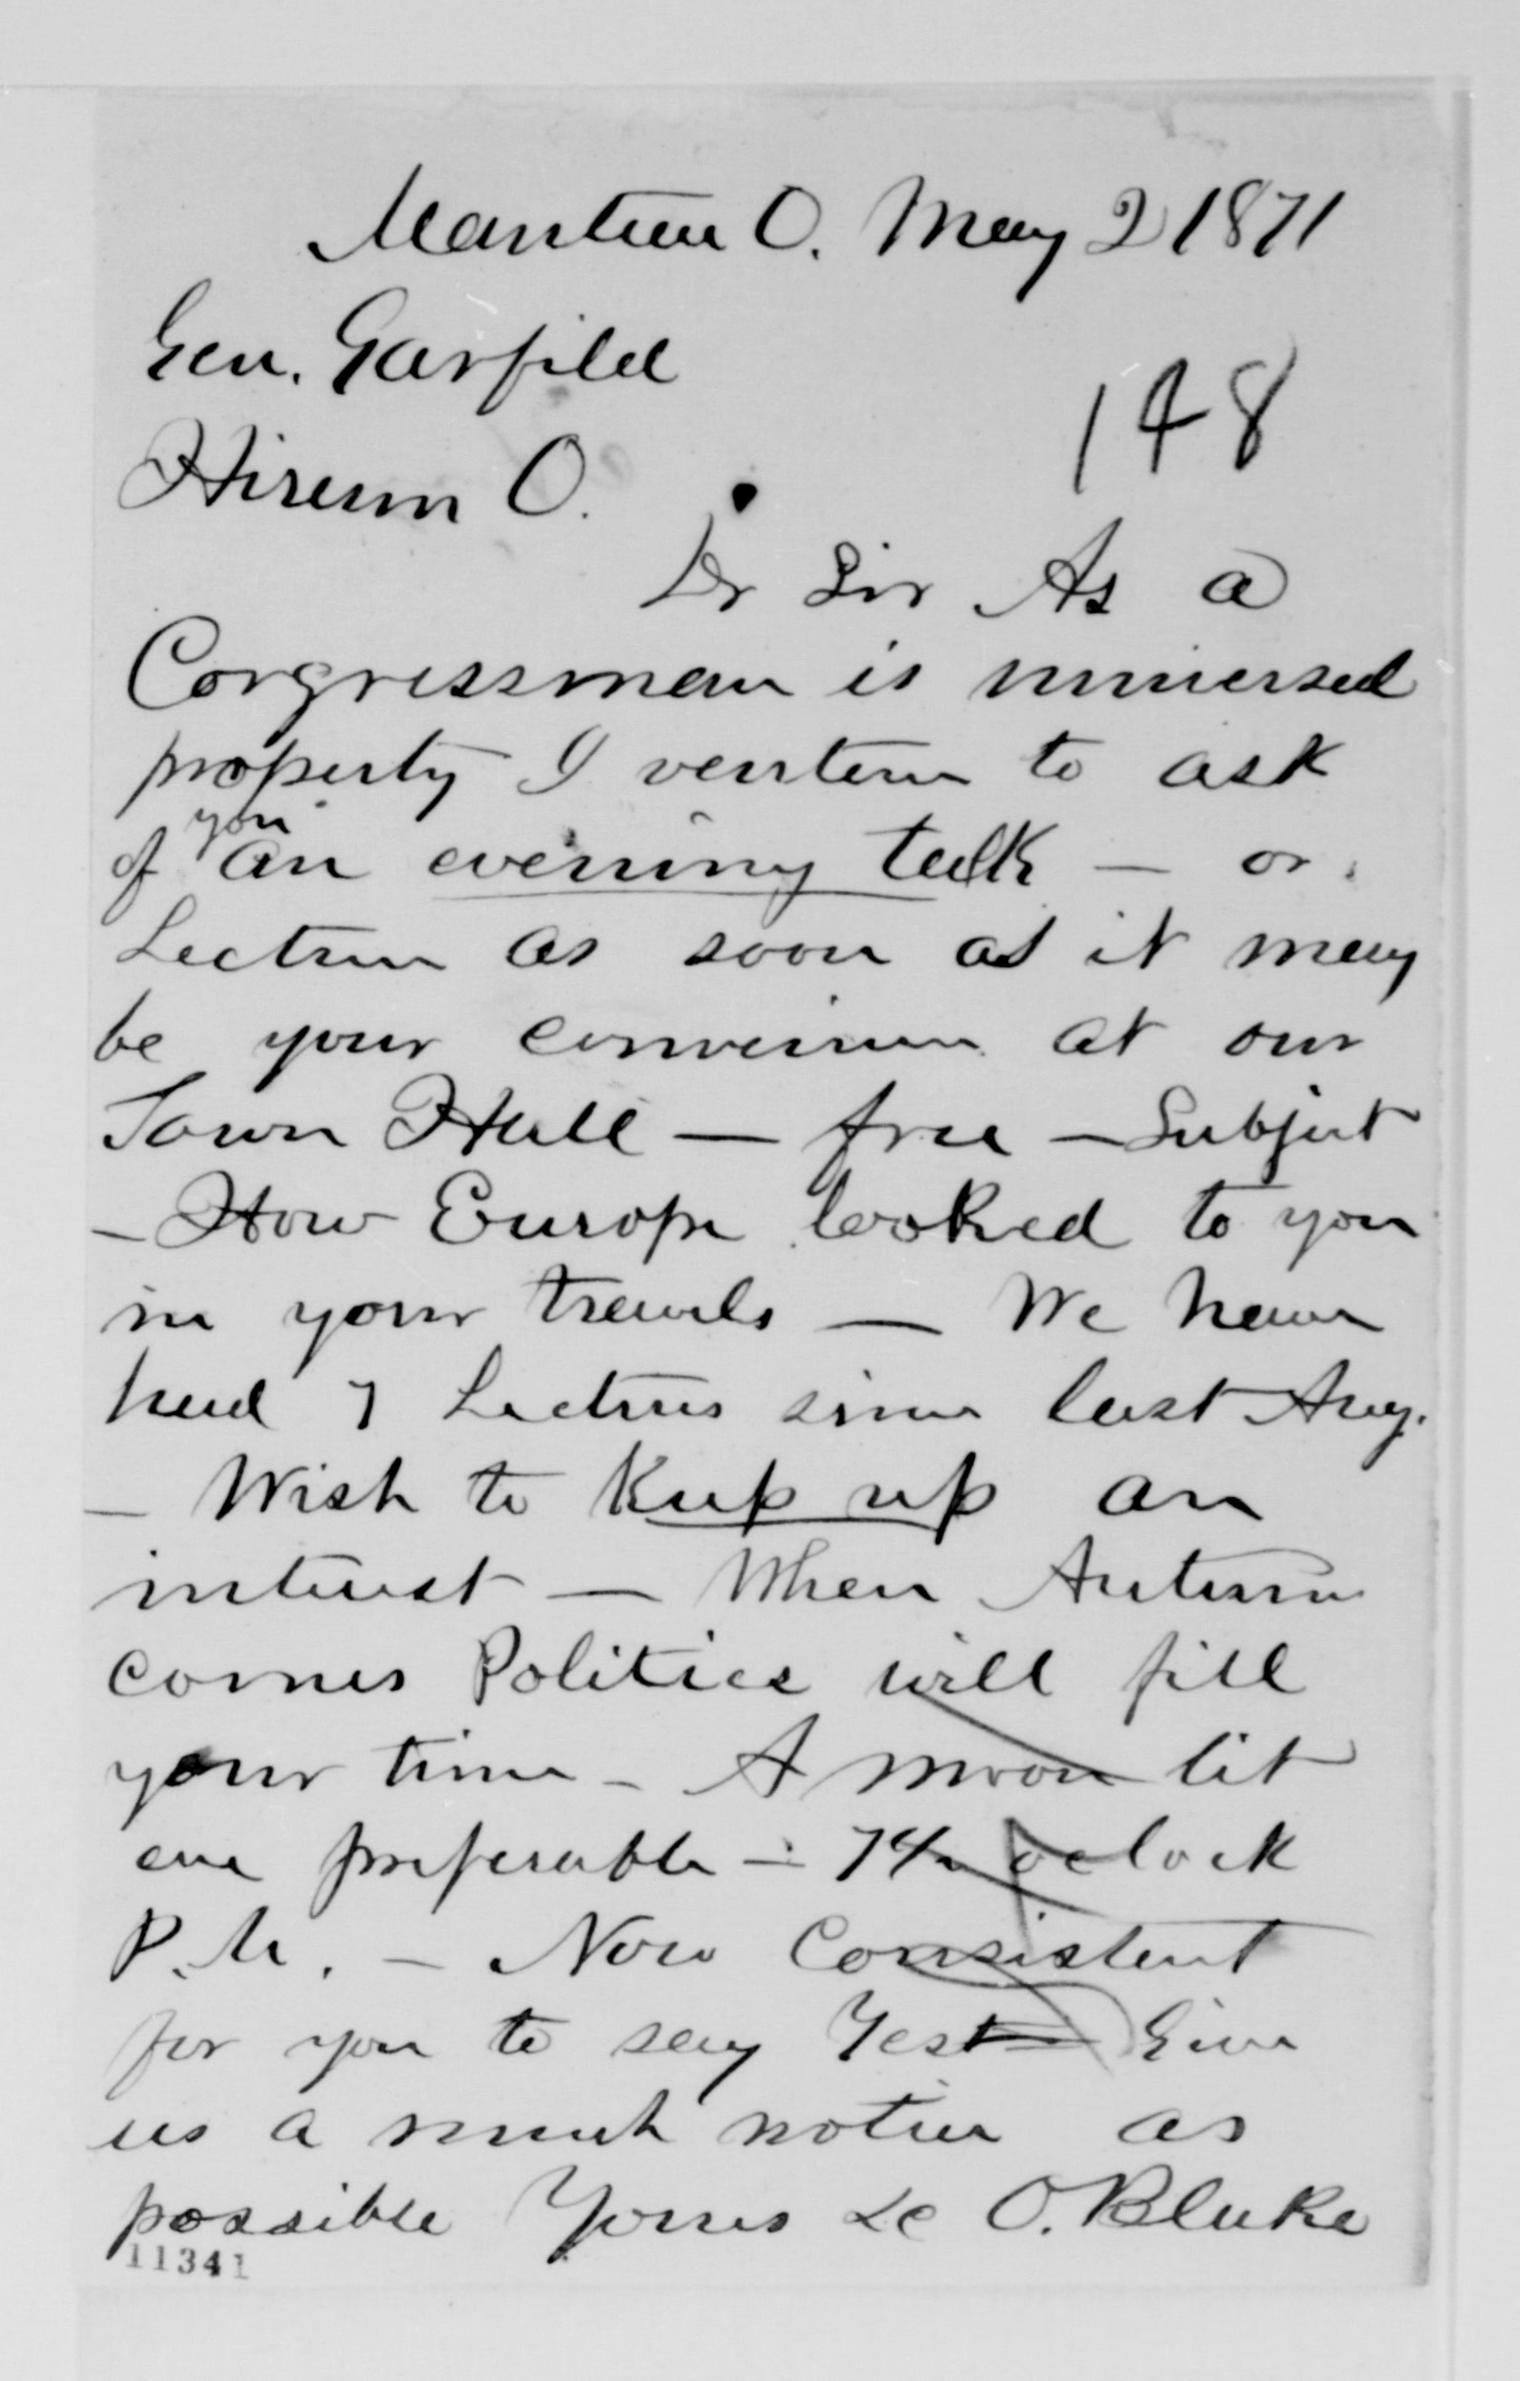 Mantua O. May 2 1871
Gen. Garfield
148
Hiram O.
Dr Sir As a
Congressman is universal
property I venture to ask
you
of an evening talk — or
Lecture as soon as it may
be your convenience at our
Town Hall — free — Subject
— How Europe looked to you
in your travels — We have
had 7 Lectures since last Aug.
— Wish to Keep up an
interest — When Autumn
comes Politics will fill
your time — A moon lit
eve preferable — 7½ oclock
P.M. — Now Consistent
for you to say Yes — Give
us a much notice as
possible Yours &c O. Blake
11341